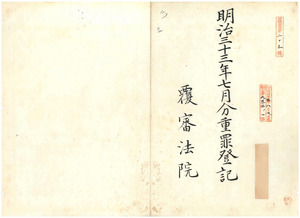 明治三十三年七月分重罪登記
覆審法院